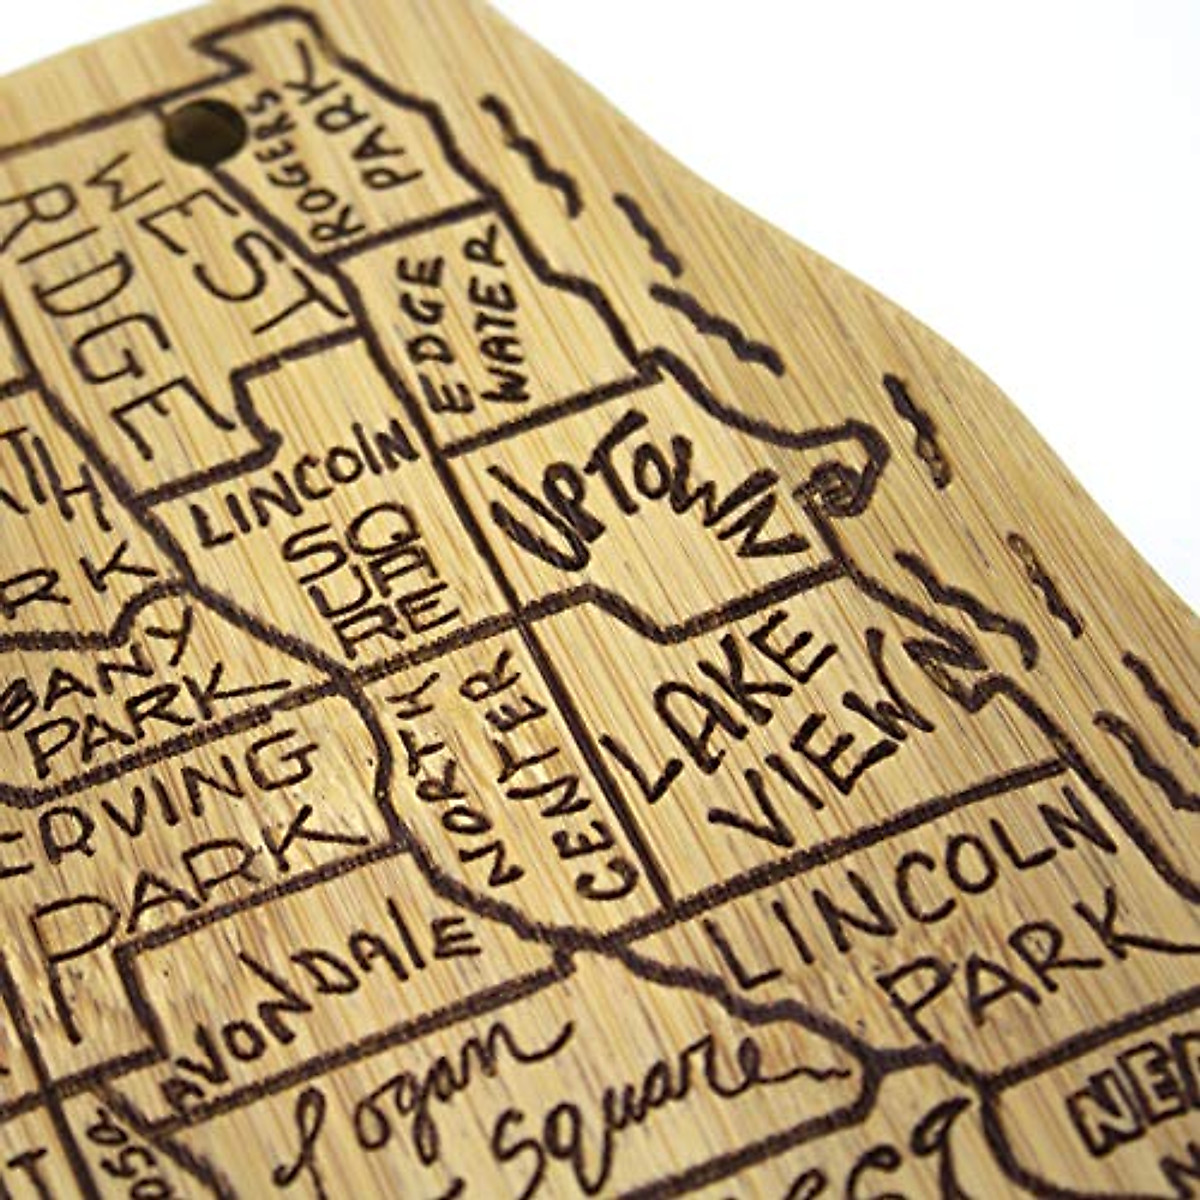 ROGERS
PARK
WEST
RIDGE
EDGE
WATER
UPTOWN
LINCOlN
SQUARE
RK
BANY
PARK
NORTH
CENTER
LAKE
VIEW
IRVING
PARK
LINCOLN
PARK
AVONDAlE
Logan
Square
NE